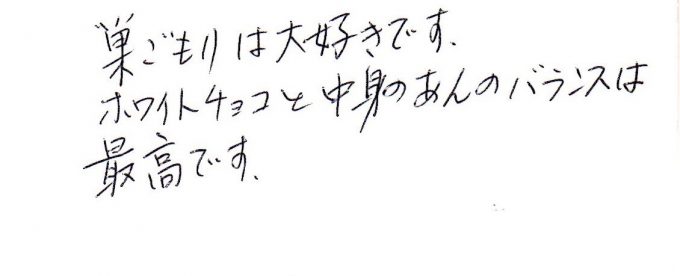 巣ごもりは大好きです.
ホワイトチョコと中身のあんのバランスは
最高です.